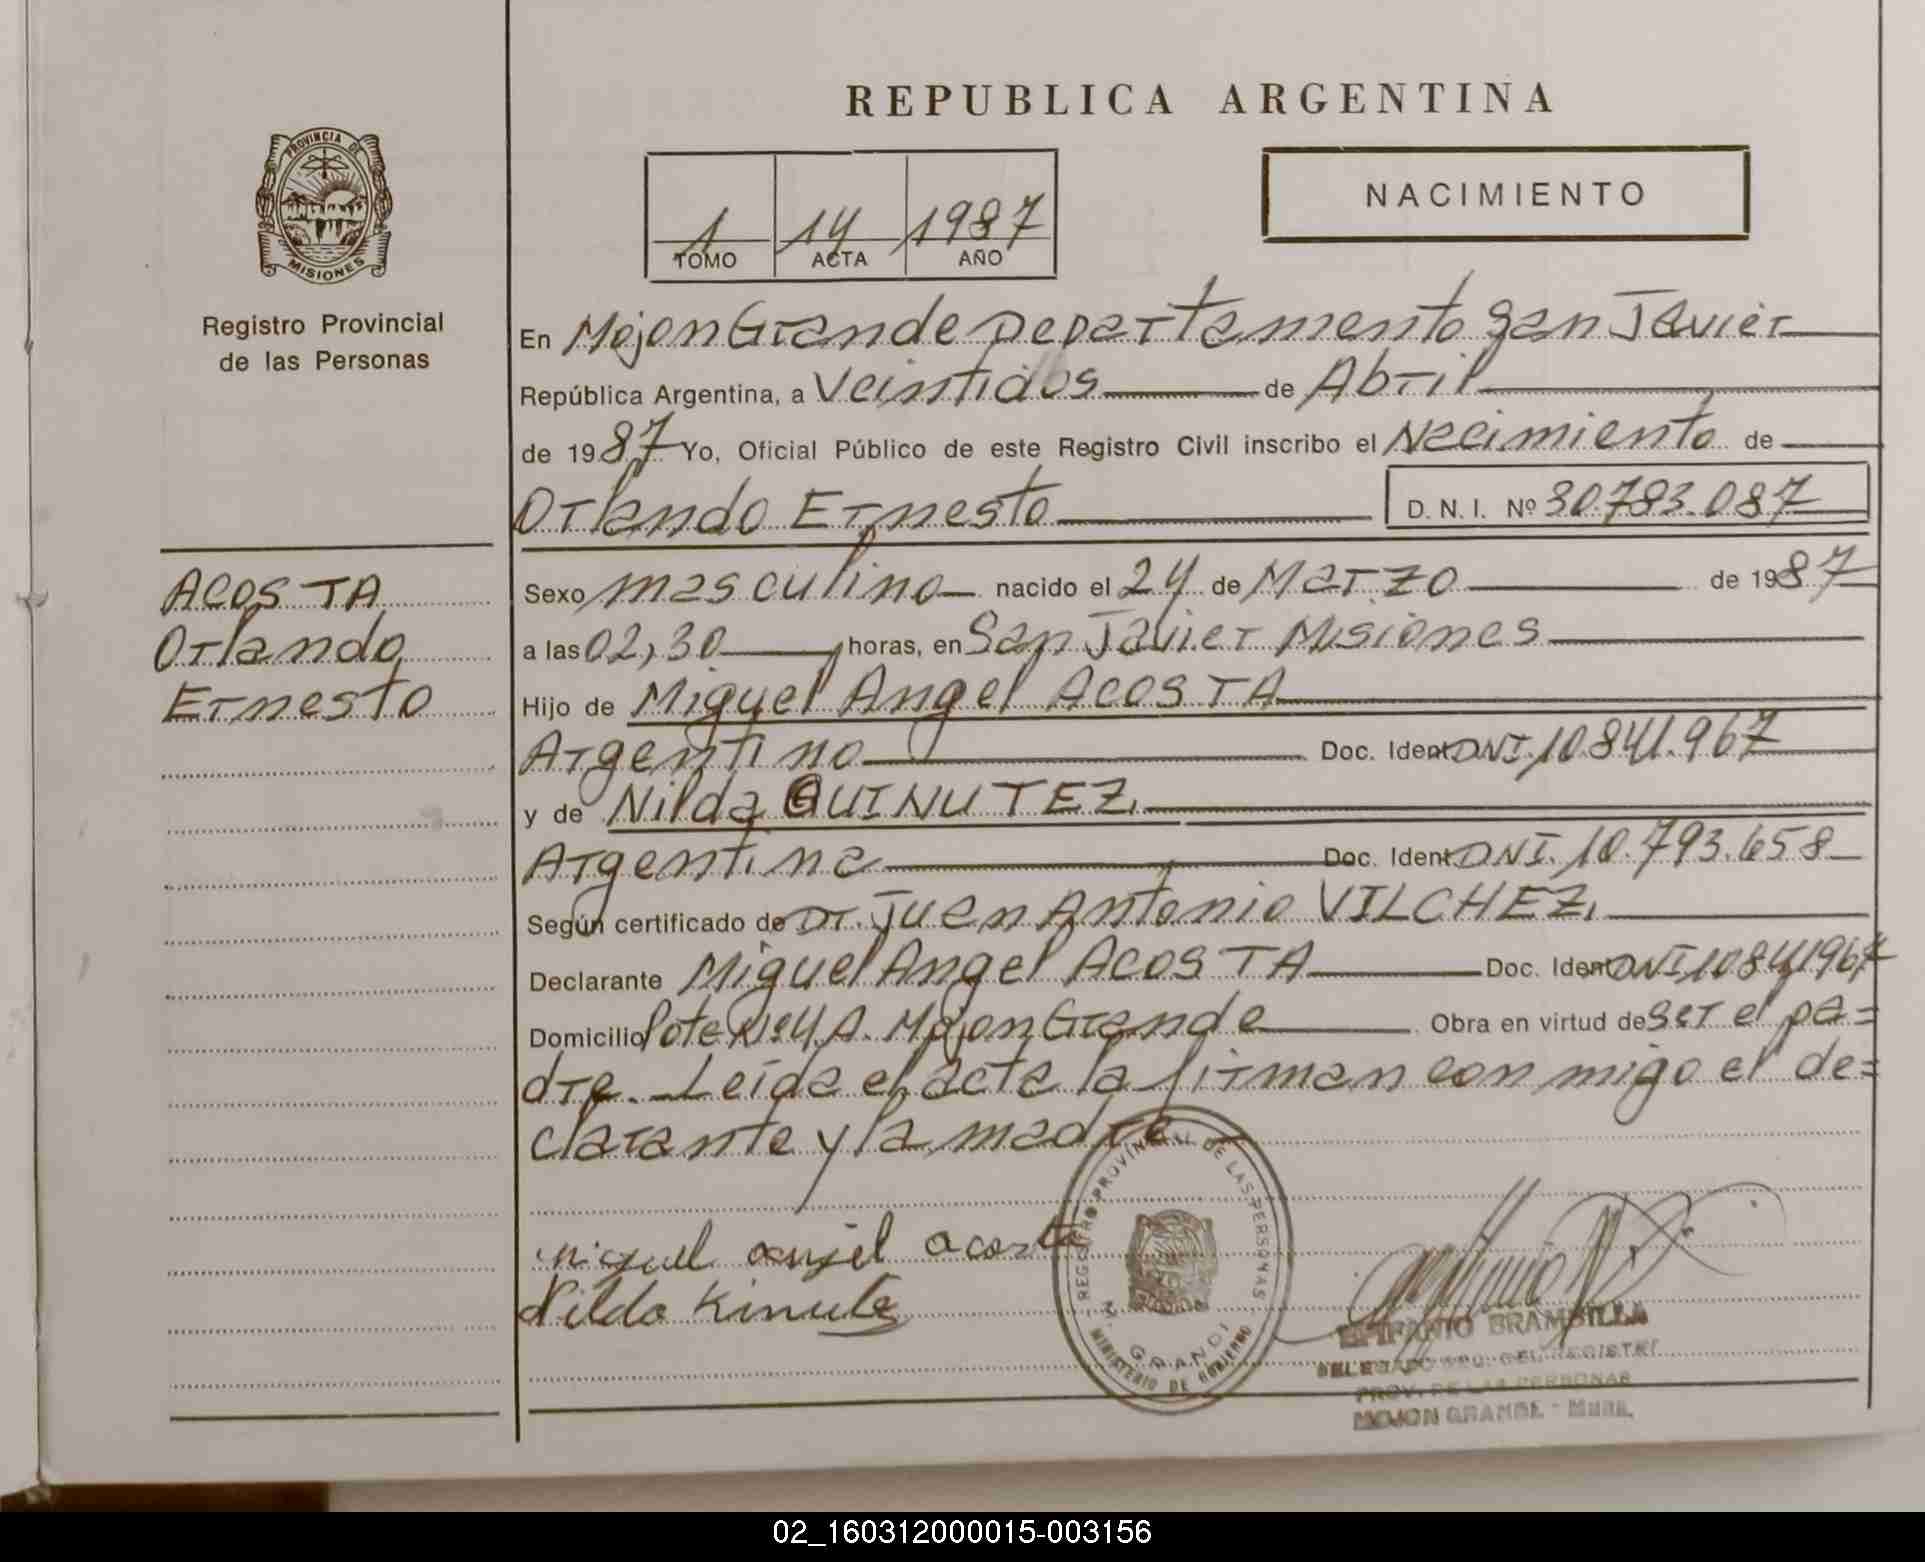 REPUBLICA ARGENTINA
PROVINCIA DE MISIONES
Registro Provincial
de las Personas
1 14 1987
TOMO ACTA AÑO
NACIMIENTO
En Mojon Grande Departamento San Javier
República Argentina, a Veintidos de Abril
de 1987 Yo, Oficial Público de este Registro Civil inscribo el Nacimiento de
Orlando Ernesto D. N. I. Nº 30.783.087
ACOSTA
Orlando
Ernesto
Sexo masculino nacido el 24 de Marzo de 1987
a las 02,30 horas, en San Javier Misiones
Hijo de Miguel Angel ACOSTA
Argentino Doc. Ident DNI. 10.841.967
y de Nilda QUINUTEZ.
Argentina Doc. Ident DNI. 10.793.658
Según certificado de Dr. Juan Antonio VILCHEZ.
Declarante Miguel Angel ACOSTA Doc. Ident DNI 10841967
Domicilio lote Nº 4 A. Mojon Grande Obra en virtud de ser el pa=
dre. Leida el acta la firman con migo el de=
clarante y la madre
miguel anjel acosta
Nilda Kinute
REGISTRO PROVINCIAL DE LAS PERSONAS
M. GRANDE
MINISTERIO DE GOBIERNO
EPIFANIO BRAMBILLA
DELEGADO DEL REGISTRO
PROV. DE LAS PERSONAS
MOJON GRANDE - Mnes.
02_160312000015-003156